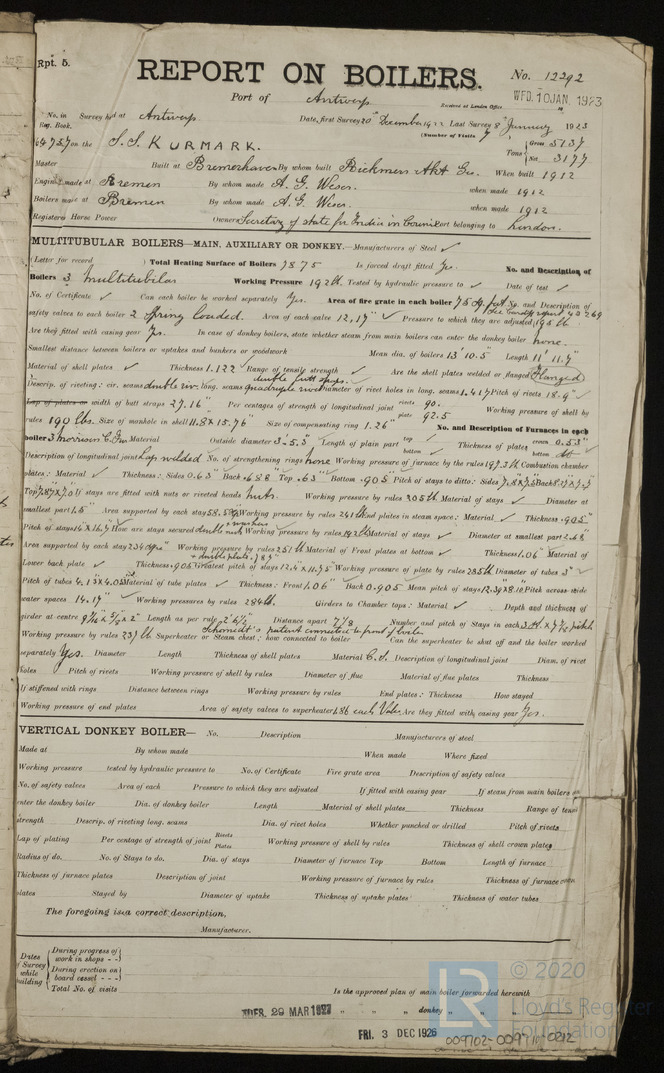 Rpt. 5.
REPORT ON BOILERS.
No. 12292
Port of Antwerp
Received at London Office WED. 10 JAN. 1923
No. in Reg. Book. Survey held at Antwerp Date, first Survey 20th December 1922 Last Survey 8th January 1923
(Number of Visits 7)
64757 on the S.S. KURMARK. Tons { Gross 5137 Net 3177
Master Built at Bremerhaven By whom built Rickmers Akt Ges. When built 1912
Engines made at Bremen By whom made A. G. Weser. when made 1912
Boilers made at Bremen By whom made A. G. Weser. when made 1912
Registered Horse Power Owners Secretary of State for India in Council Port belonging to London.
MULTITUBULAR BOILERS—MAIN, AUXILIARY OR DONKEY.—Manufacturers of Steel ✓
(Letter for record ) Total Heating Surface of Boilers 7875 Is forced draft fitted Yes. No. and Description of
Boilers 3 Multitubular Working Pressure 192 lb. Tested by hydraulic pressure to ✓ Date of test ✓
No. of Certificate ✓ Can each boiler be worked separately Yes. Area of fire grate in each boiler 75 sq. feet No. and Description of
See Cardiff report 43269
safety valves to each boiler 2 Spring loaded. Area of each valve 12,17" ✓ Pressure to which they are adjusted 195 lb
Are they fitted with easing gear Yes. In case of donkey boilers, state whether steam from main boilers can enter the donkey boiler none.
Smallest distance between boilers or uptakes and bunkers or woodwork Mean dia. of boilers 13' 10.5" Length 11' 11.7"
Material of shell plates ✓ Thickness 1.122" Range of tensile strength ✓ Are the shell plates welded or flanged Flanged
Descrip. of riveting: cir. seams double riv. long. seams double butt straps. quadruple riv. Diameter of rivet holes in long. seams 1.417 Pitch of rivets 18.9"
Lap of plates or width of butt straps 27.16" Per centages of strength of longitudinal joint rivets 90. plates 92.5 Working pressure of shell by
rules 190 lbs. Size of manhole in shell 11.8 x 15.76" Size of compensating ring 1.26" No. and Description of Furnaces in each
boiler 3 Morrison C. Fur. Material Outside diameter 3'-5.3" Length of plain part top ✓ bottom ✓ Thickness of plates crown 0.53" bottom do
Description of longitudinal joint Lap welded No. of strengthening rings none Working pressure of furnace by the rules 197.3 lb Combustion chamber
plates: Material ✓ Thickness: Sides 0.63" Back .688 Top .63 Bottom .905 Pitch of stays to ditto: Sides 7.8 x 7.5 Back
Top 7.87 x 7.0 If stays are fitted with nuts or riveted heads nuts. Working pressure by rules 205 lb Material of stays ✓ Diameter at
smallest part 1.5" Area supported by each stay 58.5 Working pressure by rules 241 lb End plates in steam space: Material ✓ Thickness .905"
Pitch of stays 14 x 16.7" How are stays secured double nuts & washers Working pressure by rules 192 lb Material of stays ✓ Diameter at smallest part 2.68"
Area supported by each stay 234 sq in Working pressure by rules 251 lb Material of Front plates at bottom ✓ Thickness 1.06" Material of
Lower back plate ✓ Thickness .905 + double plate .787 Greatest pitch of stays 12.4 x 11.75 Working pressure of plate by rules 285 lb Diameter of tubes 3" ✓
Pitch of tubes 4.1 x 4.05 Material of tube plates ✓ Thickness: Front 1.06" Back 0.905 Mean pitch of stays 12.39 x 8.10 Pitch across wide
water spaces 14.17" ✓ Working pressures by rules 284 lb. Girders to Chamber tops: Material ✓ Depth and thickness of
girder at centre Length as per rule 2' 6½" Distance apart 7 7/8 Number and pitch of Stays in each
Working pressure by rules 231 lb Superheater or Steam chest; how connected to boiler Schmidt's patent connected to front of boiler Can the superheater be shut off and the boiler worked
separately Yes. Diameter Length Thickness of shell plates Material C.S. Description of longitudinal joint Diam. of rivet
holes Pitch of rivets Working pressure of shell by rules Diameter of flue Material of flue plates Thickness
If stiffened with rings Distance between rings Working pressure by rules End plates: Thickness How stayed
Working pressure of end plates Area of safety valves to superheater 1.86 each Valve Are they fitted with easing gear Yes.
VERTICAL DONKEY BOILER— No. Description Manufacturers of steel
Made at By whom made When made Where fixed
Working pressure tested by hydraulic pressure to No. of Certificate Fire grate area Description of safety valves
No. of safety valves Area of each Pressure to which they are adjusted If fitted with easing gear If steam from main boilers
enter the donkey boiler Dia. of donkey boiler Length Material of shell plates Thickness Range of
strength Descrip. of riveting long. seams Dia. of rivet holes Whether punched or drilled Pitch of rivets
Lap of plating Per centage of strength of joint Rivets Plates Working pressure of shell by rules Thickness of shell crown plates
Radius of do. No. of Stays to do. Dia. of stays Diameter of furnace Top Bottom Length of furnace
Thickness of furnace plates Description of joint Working pressure of furnace by rules Thickness of furnace crown
plates Stayed by Diameter of uptake Thickness of uptake plates Thickness of water tubes
The foregoing is a correct description,
Manufacturer.
Dates of Survey while building { During progress of work in shops - - } { During erection on board vessel - - - } Total No. of visits
Is the approved plan of main boiler forwarded herewith
" " " donkey " " "
TUES. 29 MAR 1927
FRI. 3 DEC 1926
LR © 2020 Lloyd's Register Foundation
009702-009711-0212